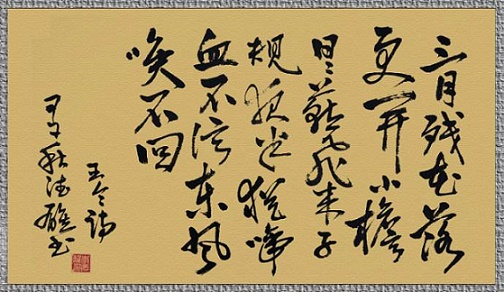 三月残花落
更开小檐
日日燕飞来子
规夜半猶啼
血不信东风
唤不回
王令诗
秋德书